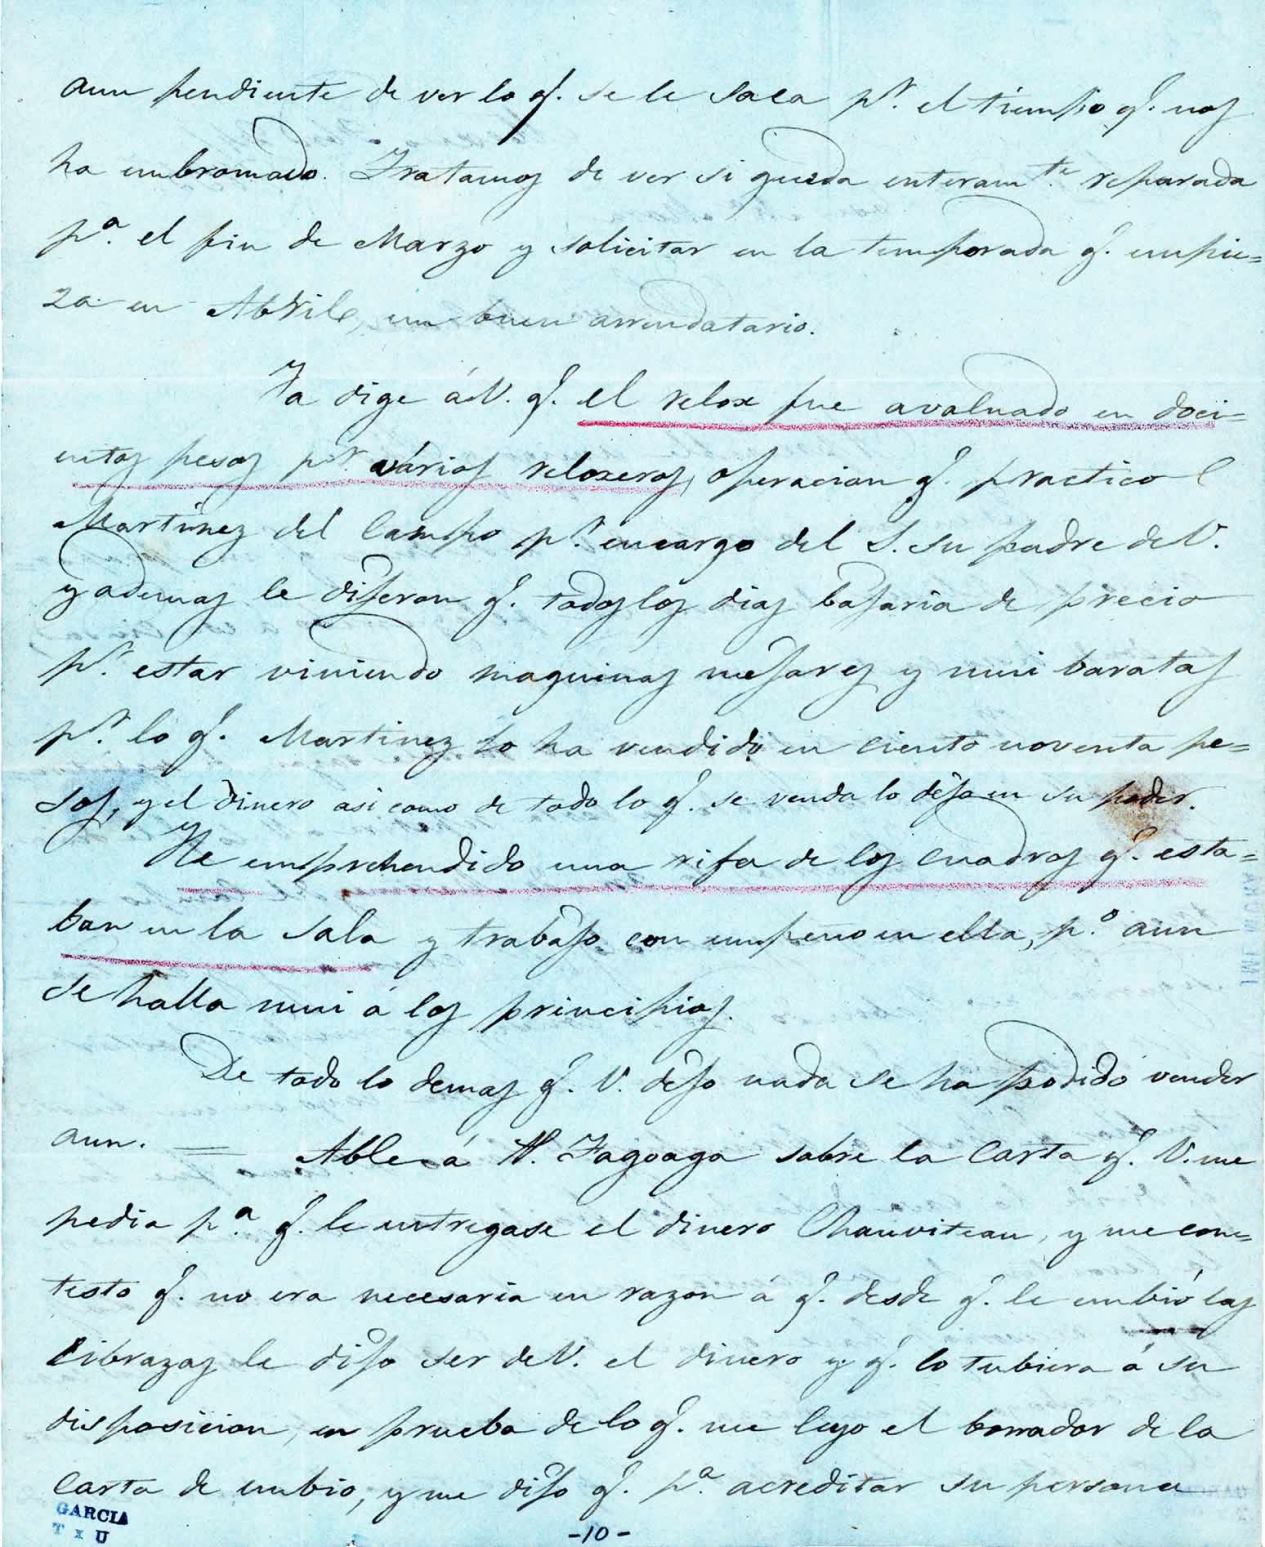 aun pendiente de ver lo q. se le saca pr. el tiempo q. nos
ha embromado. Tratamos de ver si queda enteramte. reparada
pa. el fin de Marzo y solicitar en la temporada q. empie=
za en Abril, un buen arrendatario.
Ya dige á V. q. el relox fue avaluado en doci=
entos pesos pr. vários reloxeros, operacion q. practicó
Martinez del Campo pr. encargo del S. su padre de V.
y ademas le dijeron q. todos los dias bajaria de precio
pr. estar viniendo maquinas mejores y mui baratas
pr. lo q. Martinez lo ha vendido en ciento noventa pe=
sos, y el dinero asi como de todo lo q. se venda lo dejo en su poder.
He emprehendido una rifa de los cuadros q. esta=
ban en la sala y trabajo con empeno en ella, po. aun
se halla mui á los principios.
De todo lo demas q. V. dejo nada se ha podido vender
aun. = Able á M. Fagoaga sobre la carta q. V. me
pedia pa. q. le entregase el dinero Chauviteau, y me con=
testo q. no era necesaria en razon á q. desde q. le embió las
Libranzas le dijo ser de V. el dinero y q. lo tubiera á su
disposicion, en prueba de lo q. me leyo el borrador de la
carta de embio, y me dijo q. pa. acreditar su persona
GARCIA
T x U
-10-